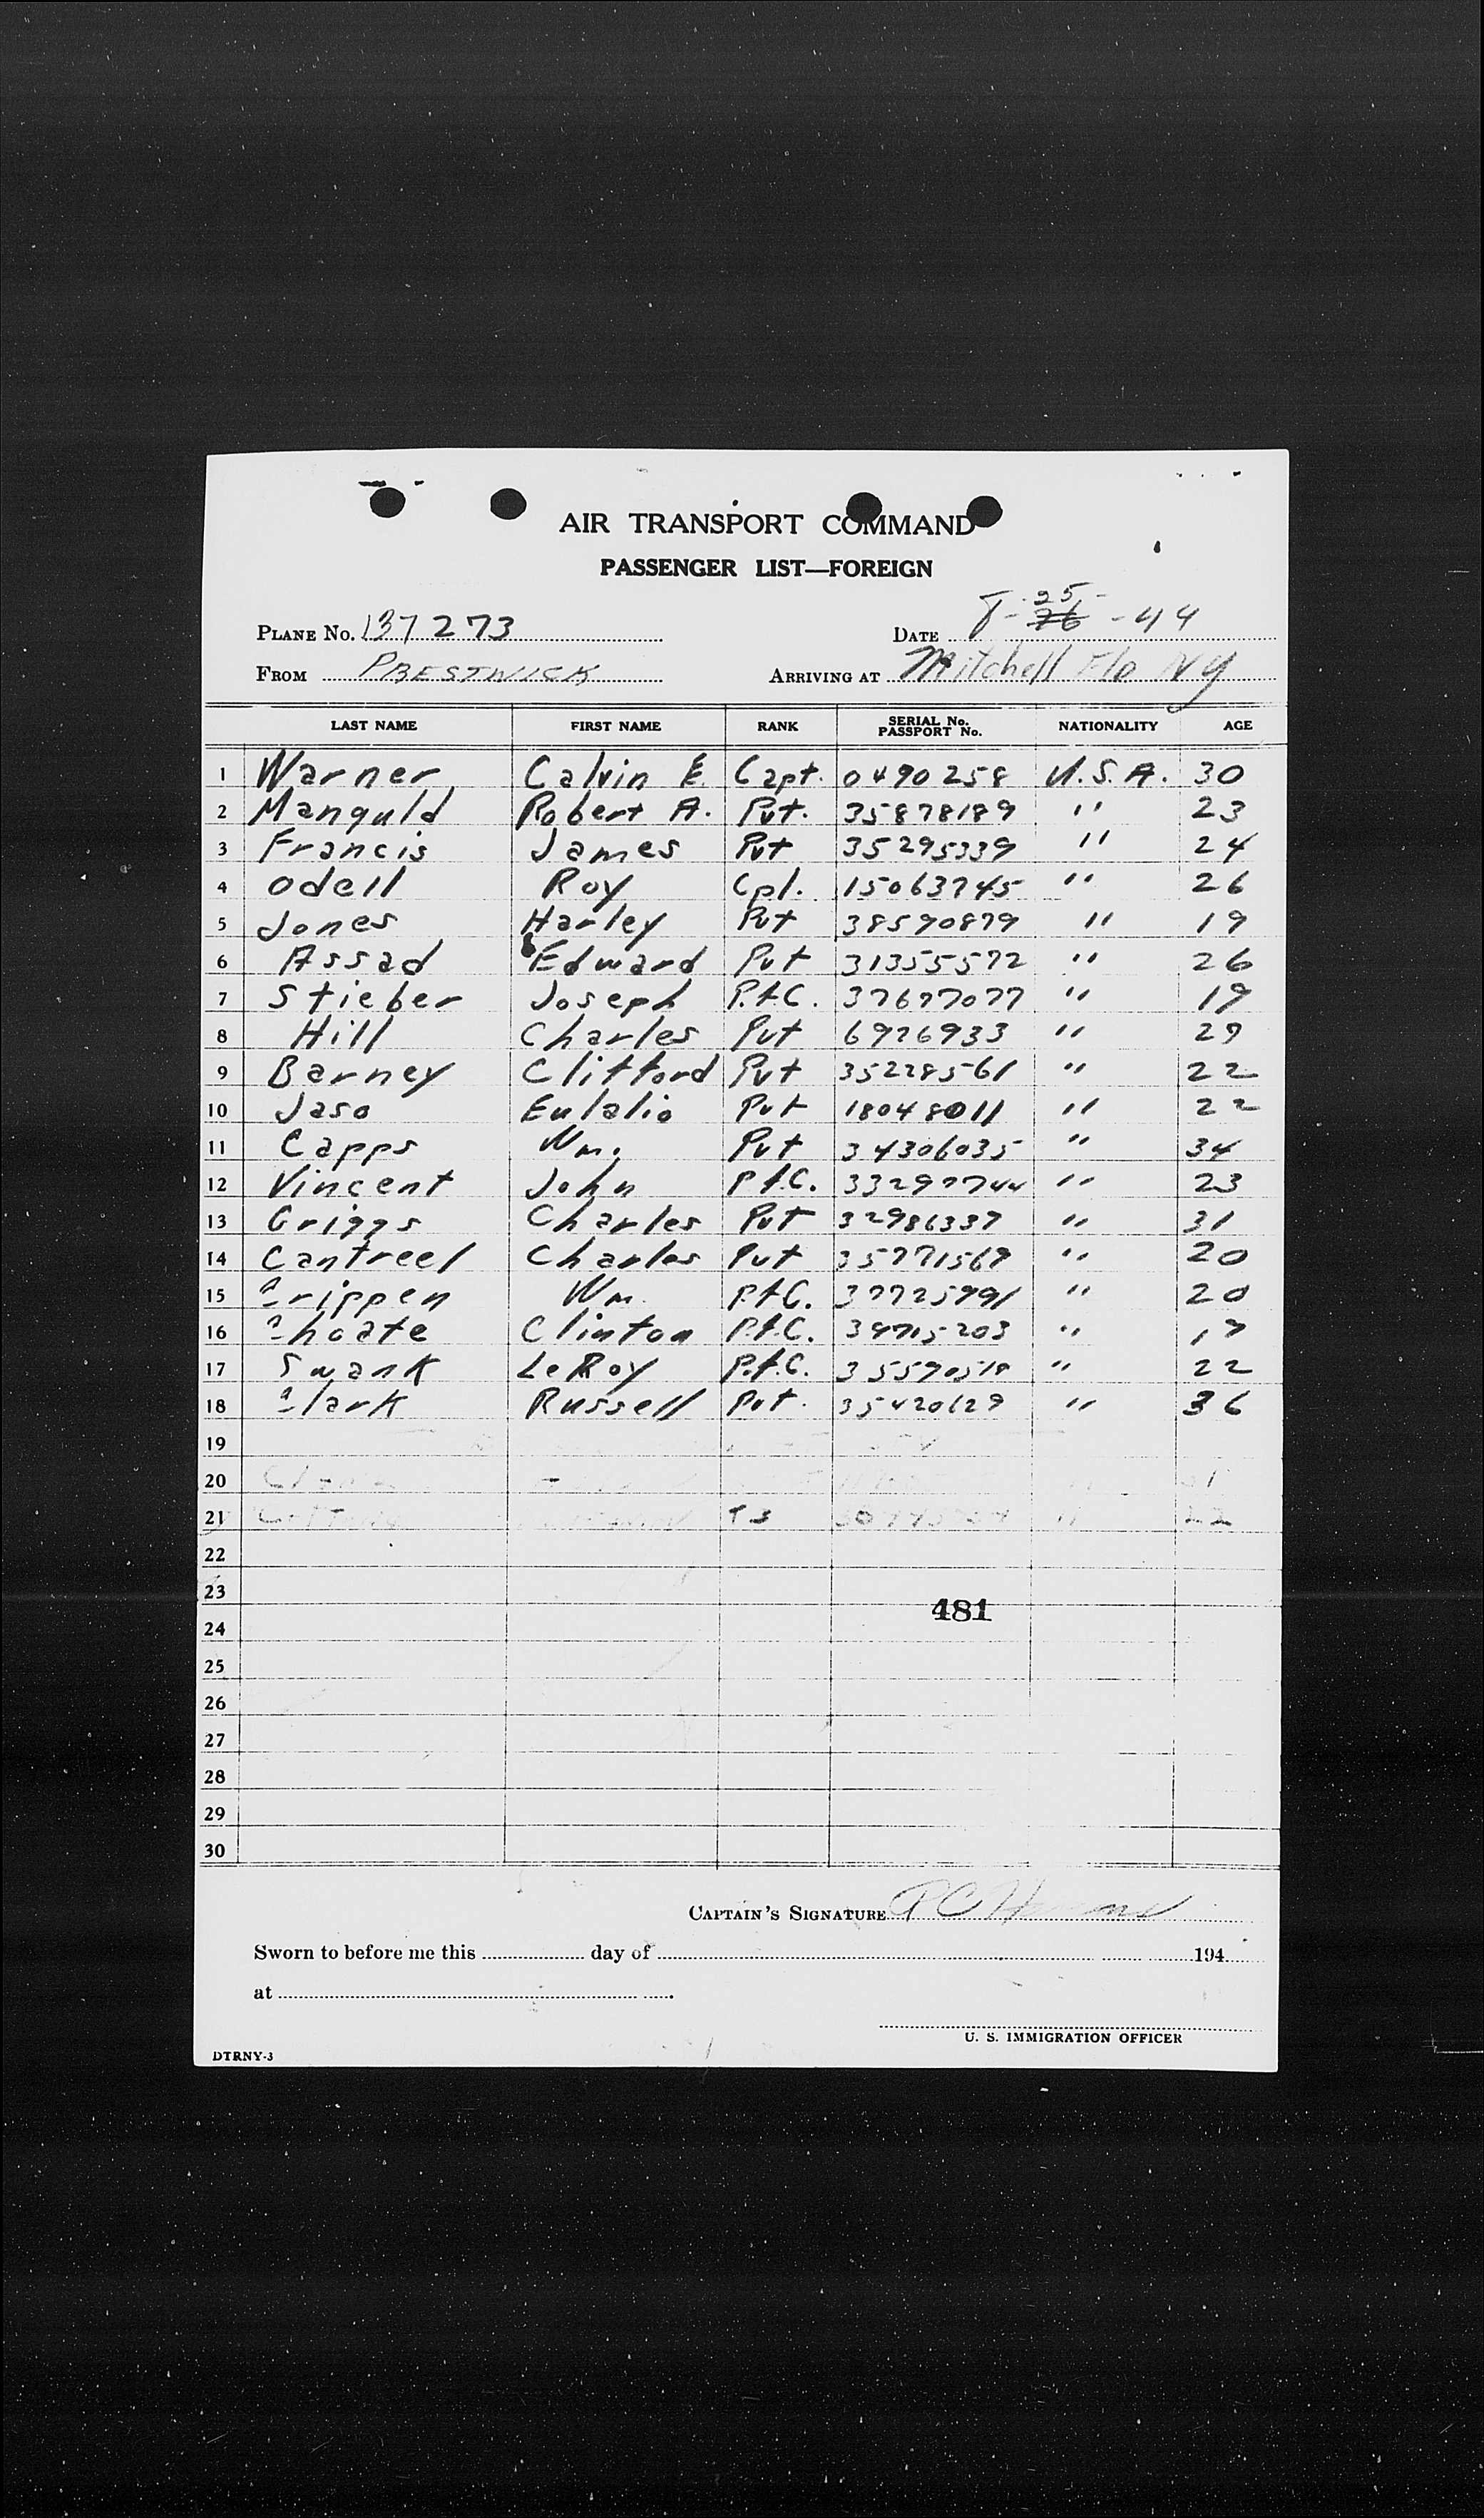 AIR TRANSPORT COMMAND
PASSENGER LIST—FOREIGN
PLANE No. 137273 DATE 8-25-44
FROM PRESTWICK ARRIVING AT Mitchell Fld NY
LAST NAME FIRST NAME RANK SERIAL No. PASSPORT No. NATIONALITY AGE
1 Warner Calvin E. Capt. 0490258 U.S.A. 30
2 Manguld Robert A. Pvt. 35878189 " 23
3 Francis James Pvt 35295339 " 24
4 Odell Roy Cpl. 15063745 " 26
5 Jones Harley Pvt 38590879 " 19
6 Assad Edward Pvt 31355572 " 26
7 Stieber Joseph P.f.C. 37697077 " 19
8 Hill Charles Pvt 6926933 " 29
9 Barney Clifford Pvt 35228561 " 22
10 Jaso Eulalio Pvt 18048011 " 22
11 Capps Wm. Pvt 34306035 " 34
12 Vincent John P.f.C. 33297744 " 23
13 Griggs Charles Pvt 32986337 " 31
14 Cantreel Charles Pvt 35771569 " 20
15 Crippen Wm. P.f.C. 37725991 " 20
16 Choate Clinton P.f.C. 34715203 " 19
17 Swank LeRoy P.f.C. " 22
18 Clark Russell Pvt. 35420629 " 36
19
20
21 T3 " 22
22
23
481
24
25
26
27
28
29
30
CAPTAIN'S SIGNATURE
Sworn to before me this day of 194
at
U. S. IMMIGRATION OFFICER
DTRNY-3